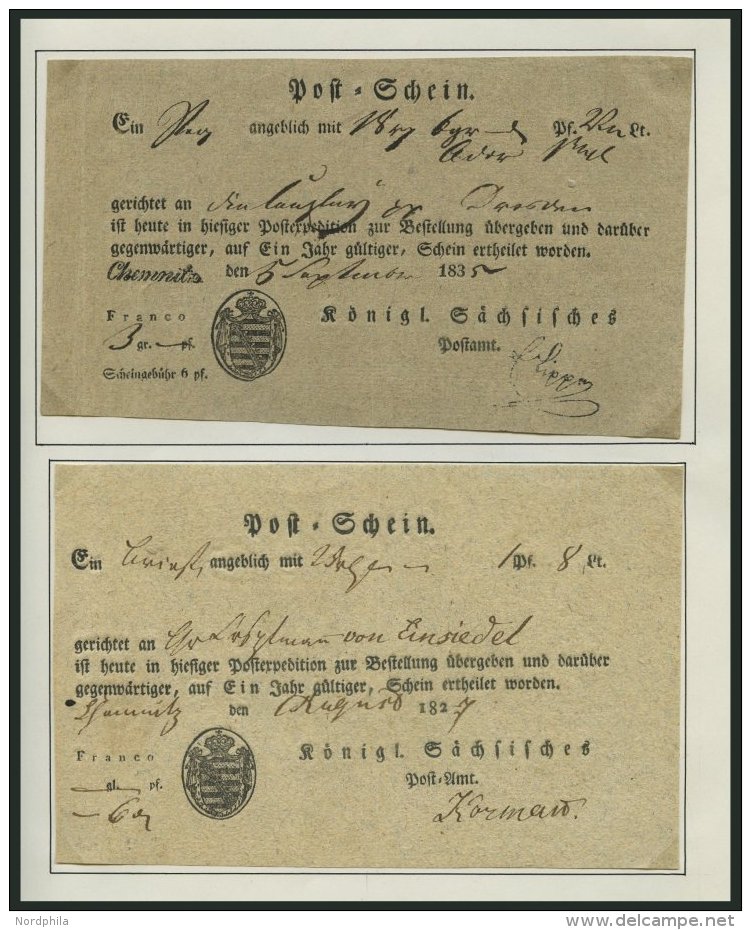 Post-Schein.
Ein angeblich mit Pf. Lt.
gerichtet an Dresden
ist heute in hiesiger Postexpedition zur Bestellung übergeben und darüber
gegenwärtiger, auf Ein Jahr gültiger, Schein ertheilet worden.
Chemnitz den 5 September 1835
Franco
Königl. Sächsisches
3 gr. — pf.
Postamt.
Scheingebühr 6 pf.
Post-Schein.
Ein angeblich mit 1 Pf. 8 Lt.
gerichtet an von Einsiedel
ist heute in hiesiger Postexpedition zur Bestellung übergeben und darüber
gegenwärtiger, auf Ein Jahr gültiger, Schein ertheilet worden.
Chemnitz den August 1827
Franco
Königl. Sächsisches
— gl. — pf.
Post-Amt.
Nordphila
delcampe.net